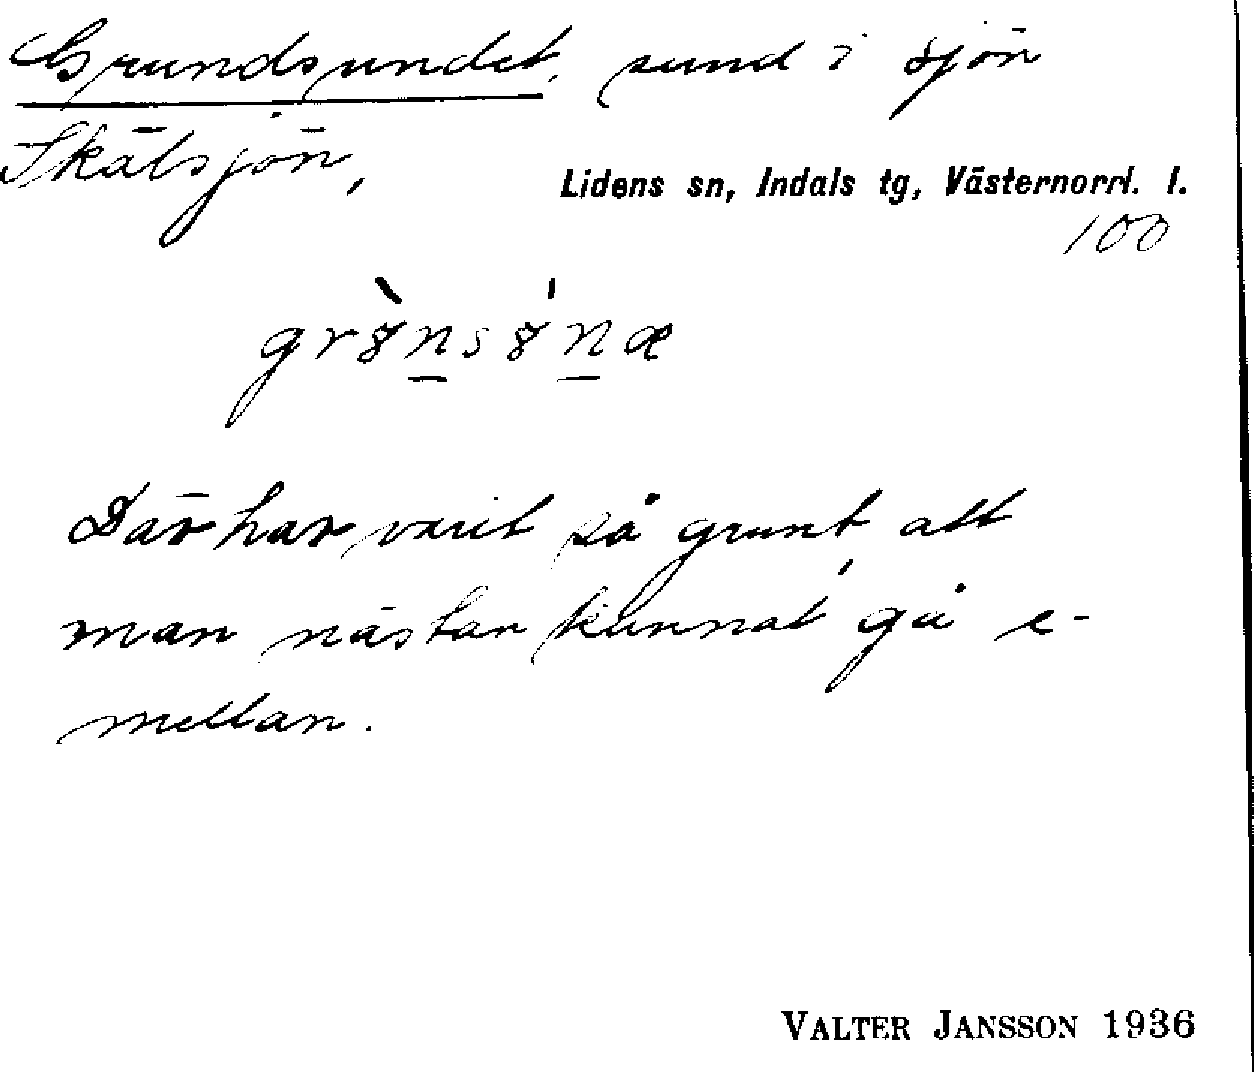 Grundsundet, sund i sjön
Skälsjön,
Lidens sn, Indals tg, Västernorrl. l.
100
gr8̀ns8́næ
Där har varit så grunt, att
man nästan kunnat gå e-
mellan.
VALTER JANSSON 1936